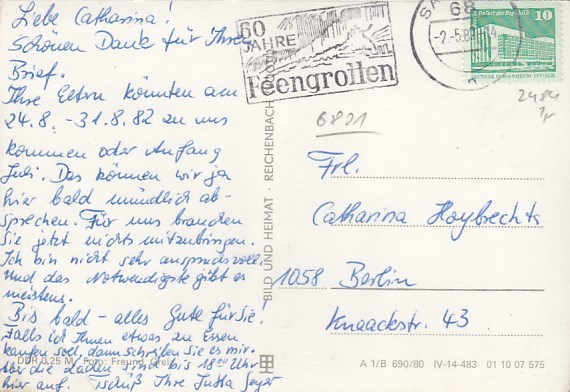 Liebe Catharina!
Schönen Dank für Ihren
Brief.
Ihre Eltern könnten am
24.8. - 31.8.82 zu uns
kommen oder Anfang
Juli. Das können wir ja
hier bald mündlich ab-
sprechen. Für uns brauchen
Sie jetzt nichts mitzubringen.
Ich bin nicht sehr anspruchsvoll
und das Notwendigste gibt es
meistens.
Bis bald - alles Gute für Sie.
Falls ich Ihnen etwas zu Essen
kaufen soll, dann schreiben Sie es mir.
Aber die Läden sind bis 18.00 Uhr
hier auf. Tschüß Ihre Jutta
DDR 0,25 M Foto: Freund, Greiz
BILD UND HEIMAT · REICHENBACH
60
JAHRE
Feengrotten
68
-2.5.82
Palast der Republik
10
DEUTSCHE DEMOKRATISCHE REPUBLIK
6821
Frl.
Catharina Huybrechts
1058 Berlin
Knaackstr. 43
A 1/B 690/80 IV-14-483 01 10 07 575